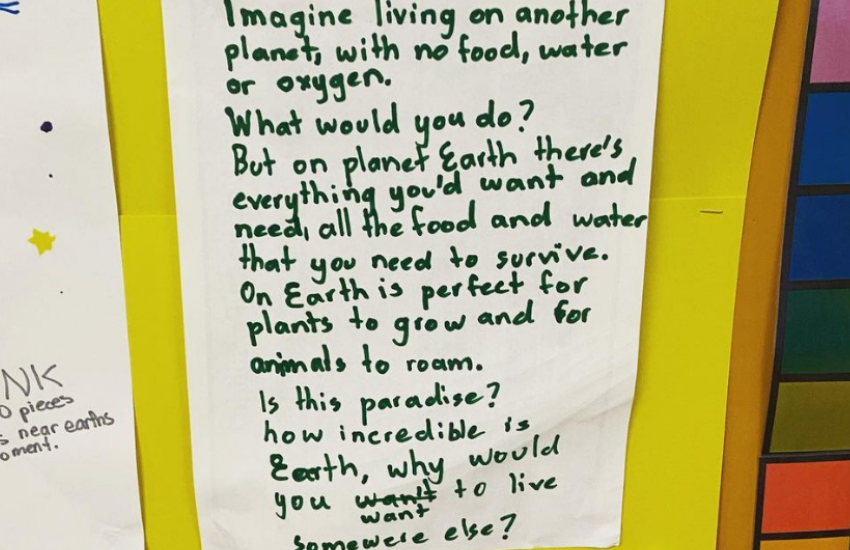 Imagine living on another
planet, with no food, water
or oxygen.
What would you do?
But on planet Earth there's
everything you'd want and
need, all the food and water
that you need to survive.
On Earth is perfect for
plants to grow and for
animals to roam.
Is this paradise?
how incredible is
Earth, why would
you wan't to live
want
somewere else?
NK
pieces
near earths
oment.